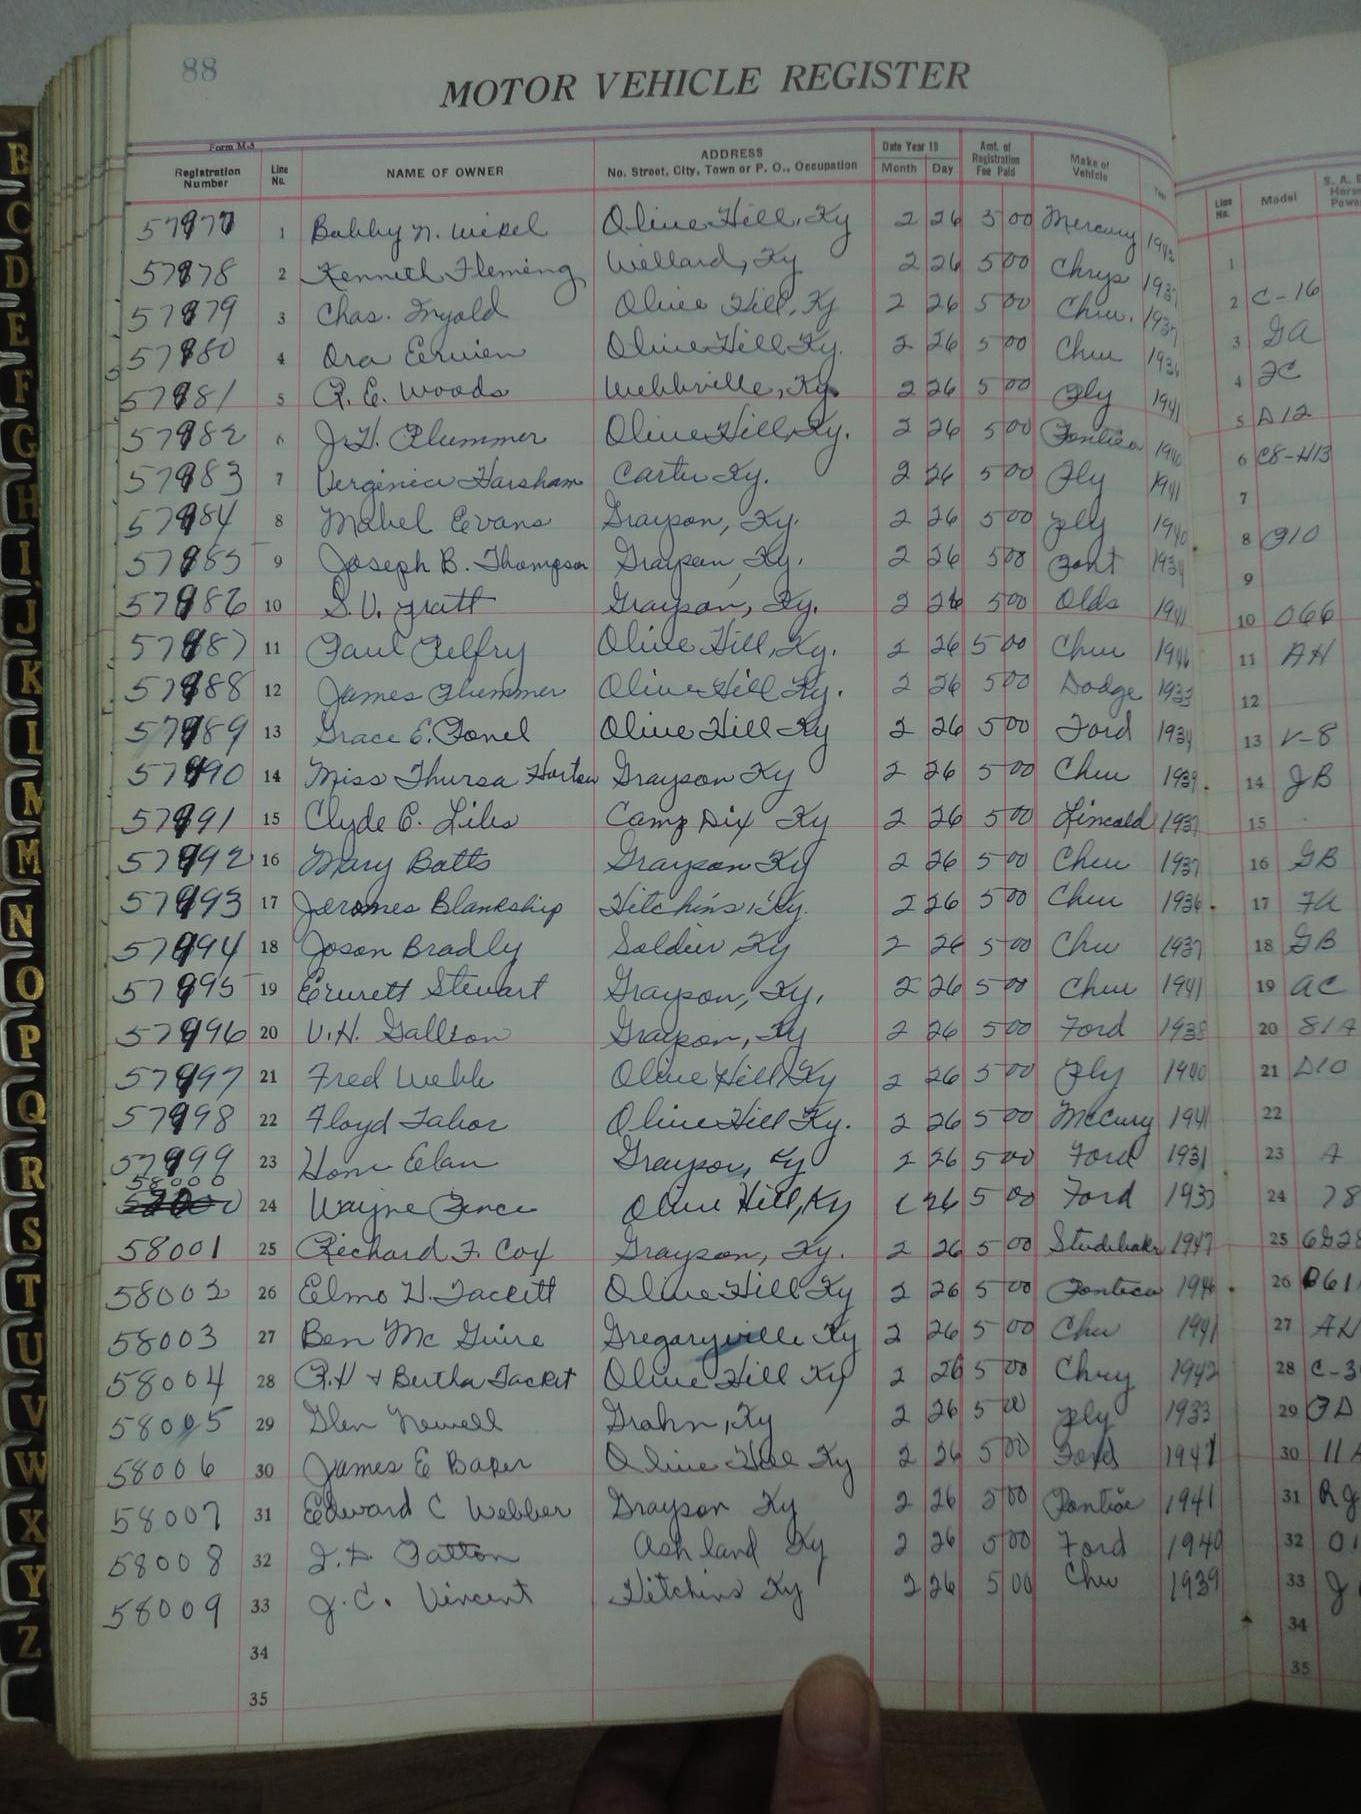 88
MOTOR VEHICLE REGISTER
Form M-5
Registration Number Line No. NAME OF OWNER ADDRESS No. Street, City, Town or P. O., Occupation Date Year 19 Month Day Amt. of Registration Fee Paid Make of Vehicle Year Line No. Model S. A. E. Horse Power
57977 1 Bobby N. Olive Hill, Ky 2 26 5 00 Mercury 1 
57978 2 Kenneth Fleming Willard, Ky 2 26 5 00 Chrys 1937 2 C-16
57979 3 Chas. Olive Hill, Ky 2 26 5 00 Chev. 1937 3 GA
57980 4 Ora Olive Hill Ky. 2 26 5 00 Chev 1936 4 FC
57981 5 R. E. Woods Webbville, Ky. 2 26 5 00 Ply 1941 5 D12
57982 6 J. H. Plummer Olive Hill, Ky. 2 26 5 00 Pontica 1940 6 C8-H13
57983 7 Verginia Harsham Carter Ky. 2 26 5 00 Ply 1941 7
57984 8 Mabel Evans Grayson, Ky. 2 26 5 00 Ply 1940 8 P10
57985 9 Joseph B. Thompson Grayson, Ky. 2 26 5 00 Pont 1934 9
57986 10 S. V. Pratt Grayson, Ky. 2 26 5 00 Olds 1941 10 066
57987 11 Paul Pelfry Olive Hill, Ky. 2 26 5 00 Chev 1946 11 AH
57988 12 James Plummer Olive Hill Ky. 2 26 5 00 Dodge 1933 12
57989 13 Grace E. Olive Hill Ky 2 26 5 00 Ford 1934 13 V-8
57990 14 Miss Thursa Horton Grayson Ky 2 26 5 00 Chev 1939 14 JB
57991 15 Clyde C. Liles Camp Dix Ky 2 26 5 00 1937 15
57992 16 Mary Batts Grayson Ky 2 26 5 00 Chev 1937 16 GB
57993 17 Jeromes Blankship Hitchins, Ky. 2 26 5 00 Chev 1936 17 FA
57994 18 Joson Bradly Soldier Ky 2 26 5 00 Chev 1937 18 GB
57995 19 Everett Stewart Grayson, Ky, 2 26 5 00 Chev 1941 19 AC
57996 20 V. H. Gallion Grayson, Ky 2 26 5 00 Ford 1938 20 81A
57997 21 Fred Webb Olive Hill, Ky 2 26 5 00 Ply 1940 21 D10
57998 22 Floyd Tabor Olive Hill Ky. 2 26 5 00 McCury 1941 22
57999 23 Elam Grayson, Ky 2 26 5 00 Ford 1931 23 A
58000 24 Wayne Pence Olive Hill, Ky 26 5 00 Ford 1937 24 78
58001 25 Richard F. Cox Grayson, Ky. 2 26 5 00 Studebaker 1947 25
58002 26 Elmo H. Tackett Olive Hill Ky 2 26 5 00 Pontica 194 26 D61
58003 27 Ben Mc Guire Gregaryville Ky 2 26 5 00 Chev 1941 27 AH
58004 28 R. H + Bertha Tacket Olive Hill Ky 2 26 5 00 Chry 1942 28 C-3
58005 29 Glen Newell Grahn, Ky 2 26 5 00 Ply 1933 29 PD
58006 30 James E Baker Olive Hill Ky 2 26 5 00 Ford 1941 30 11A
58007 31 Edward C Webber Grayson Ky 2 26 5 00 Pontiac 1941 31
58008 32 Patton Ashland Ky 2 26 5 00 Ford 1940 32 01
58009 33 J. C. Vincent Hitchins Ky 2 26 5 00 Chev 1939 33 J
34 34
35 35
B
C
D
E
F
G
H
I
J
K
L
M
M
N
O
P
Q
R
S
T
U
V
W
X
Y
Z